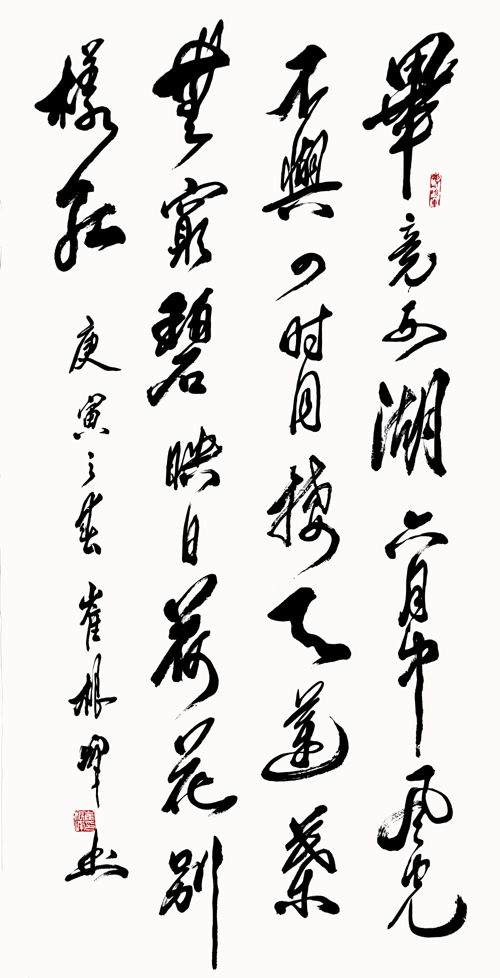 畢竟西湖六月中風光
不與四时同接天蓮葉
無窮碧映日荷花別
樣紅
庚寅之春崔根书